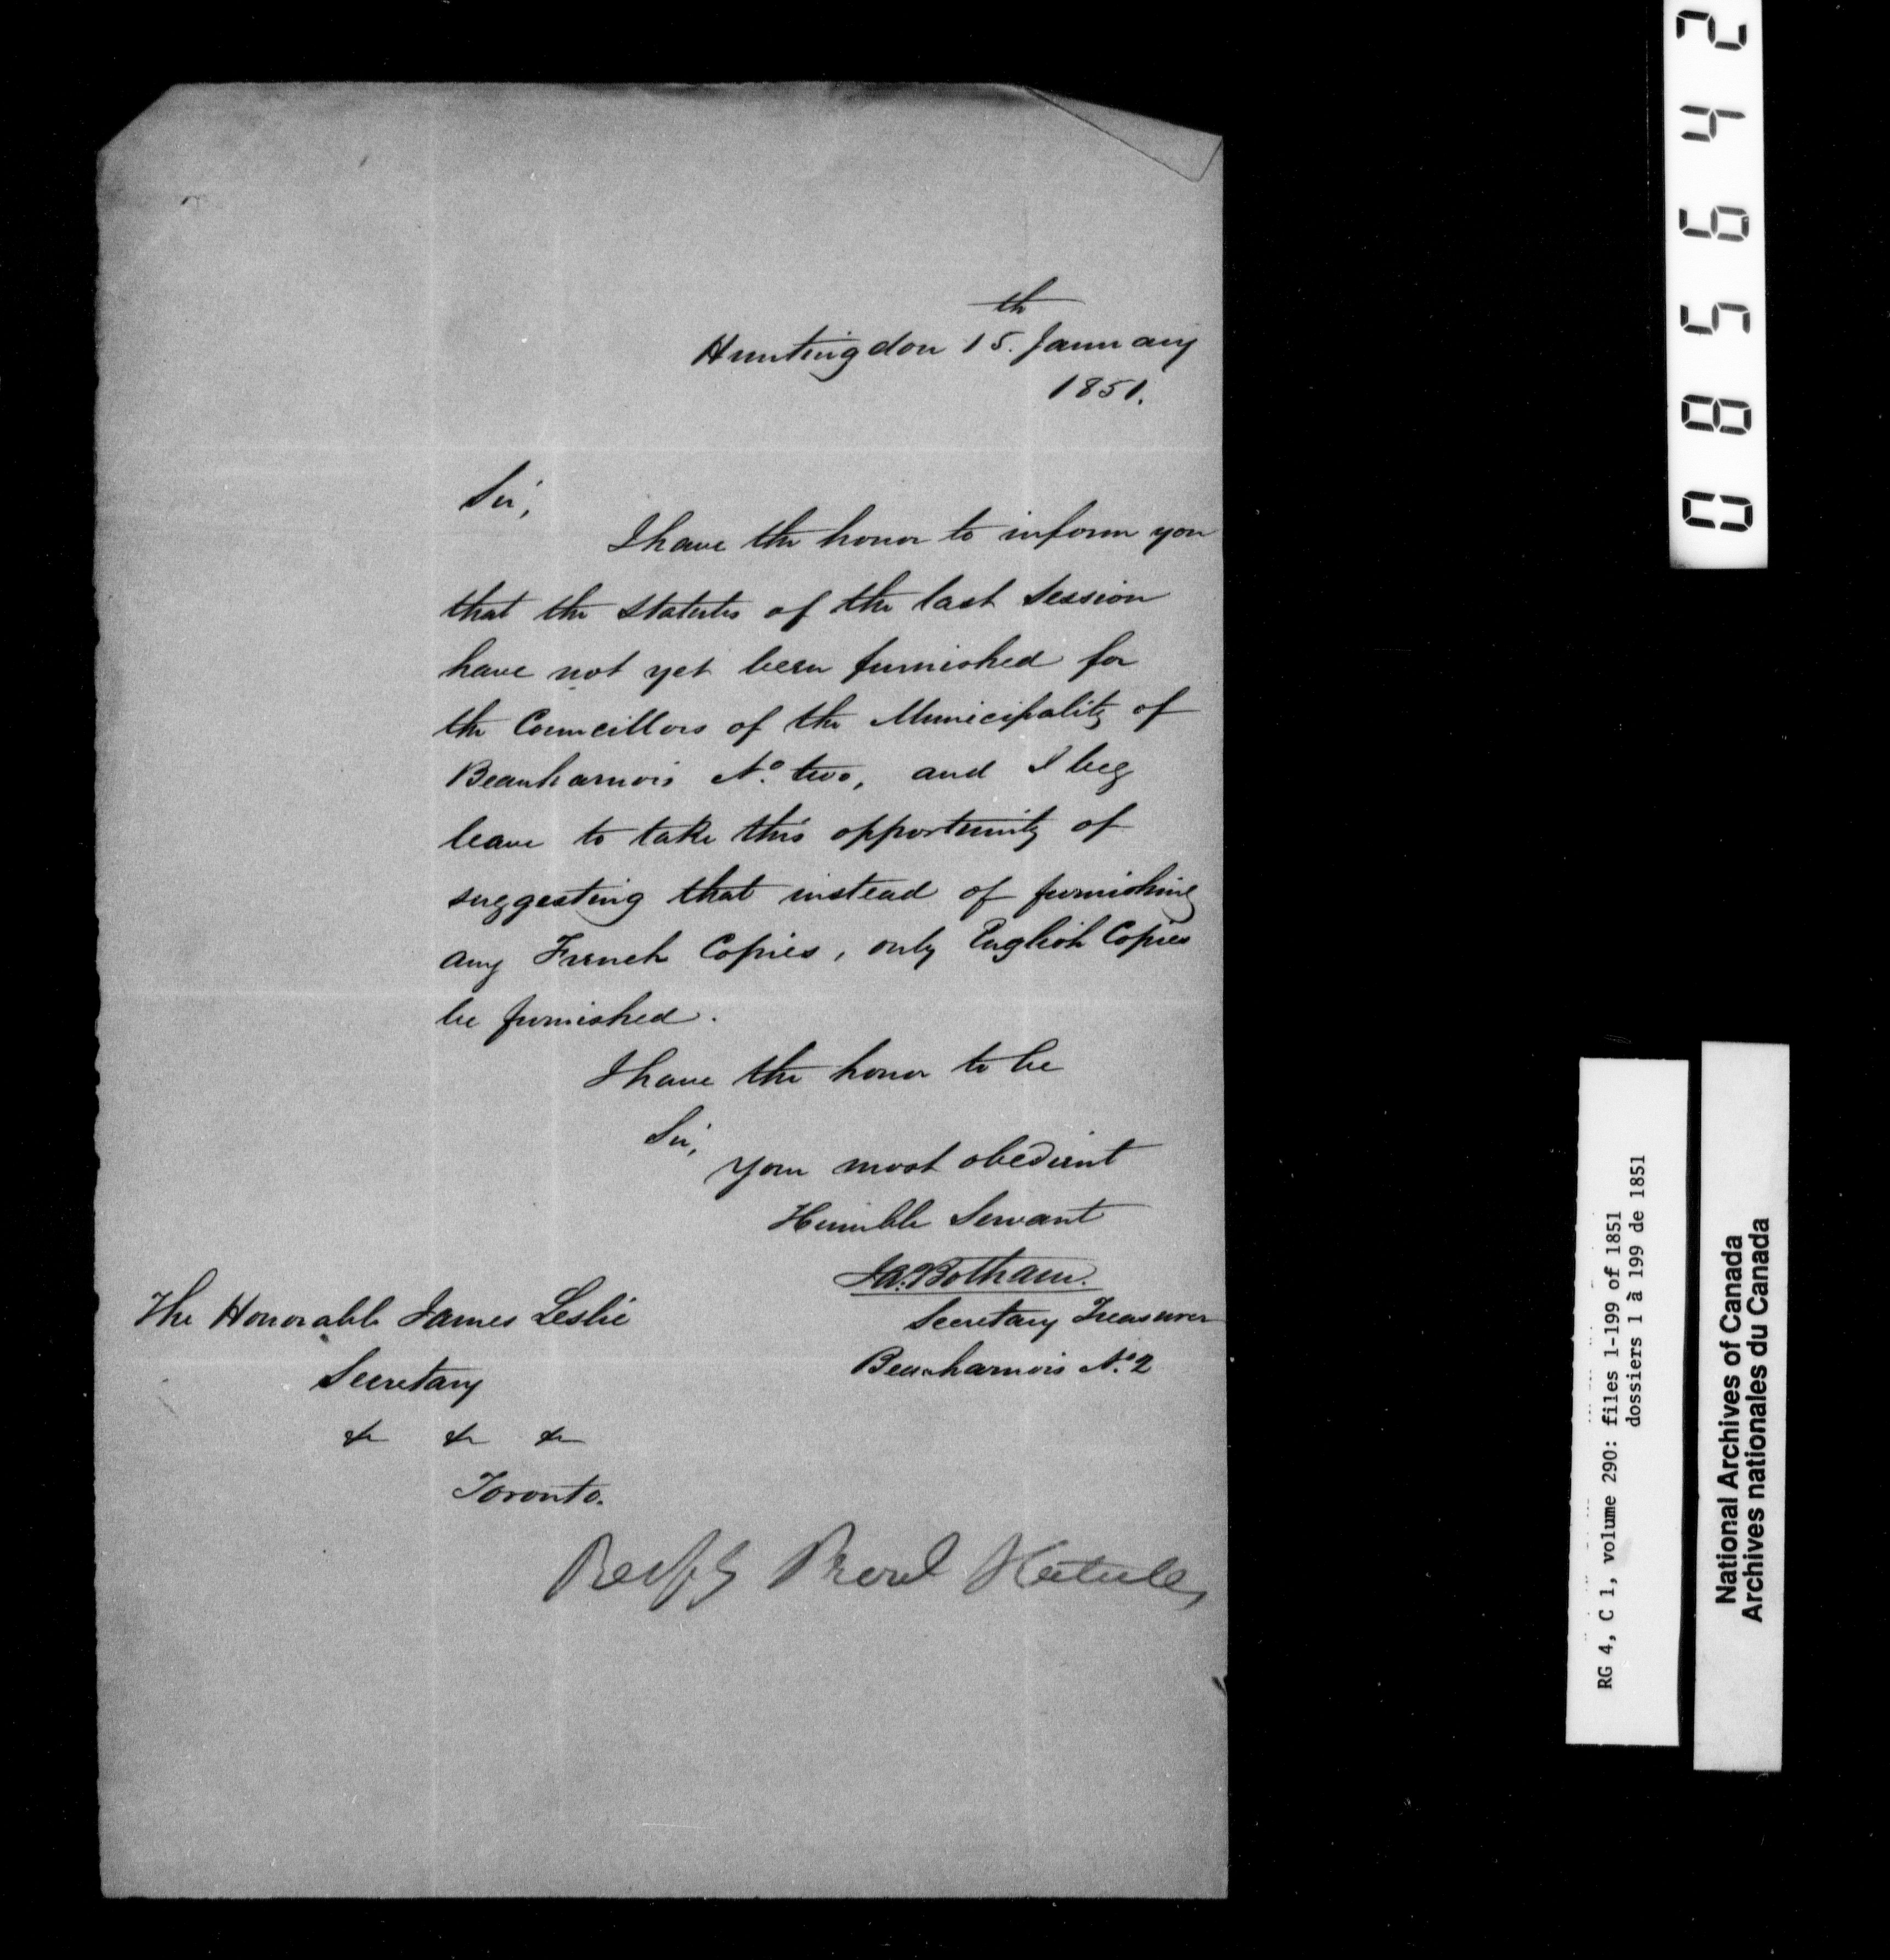 Huntingdon 15th January
1851.
Sir,
I have the honor to inform you
that the Statutes of the last Session
have not yet been furnished for
the Councillors of the Municipality of
Beauharnois No. two, and I beg
leave to take this opportunity of
suggesting that instead of furnishing
any French Copies, only English Copies
be furnished.
I have the honor to be
Sir,
Your most obedient
Humble Servant
Botham.
Secretary Treasurer
Beauharnois No. 2
The Honorable James Leslie
Secretary
&c &c &c
Toronto.
085642
RG 4, C 1, volume 290: files 1-199 of 1851
dossiers 1 à 199 de 1851
National Archives of Canada
Archives nationales du Canada